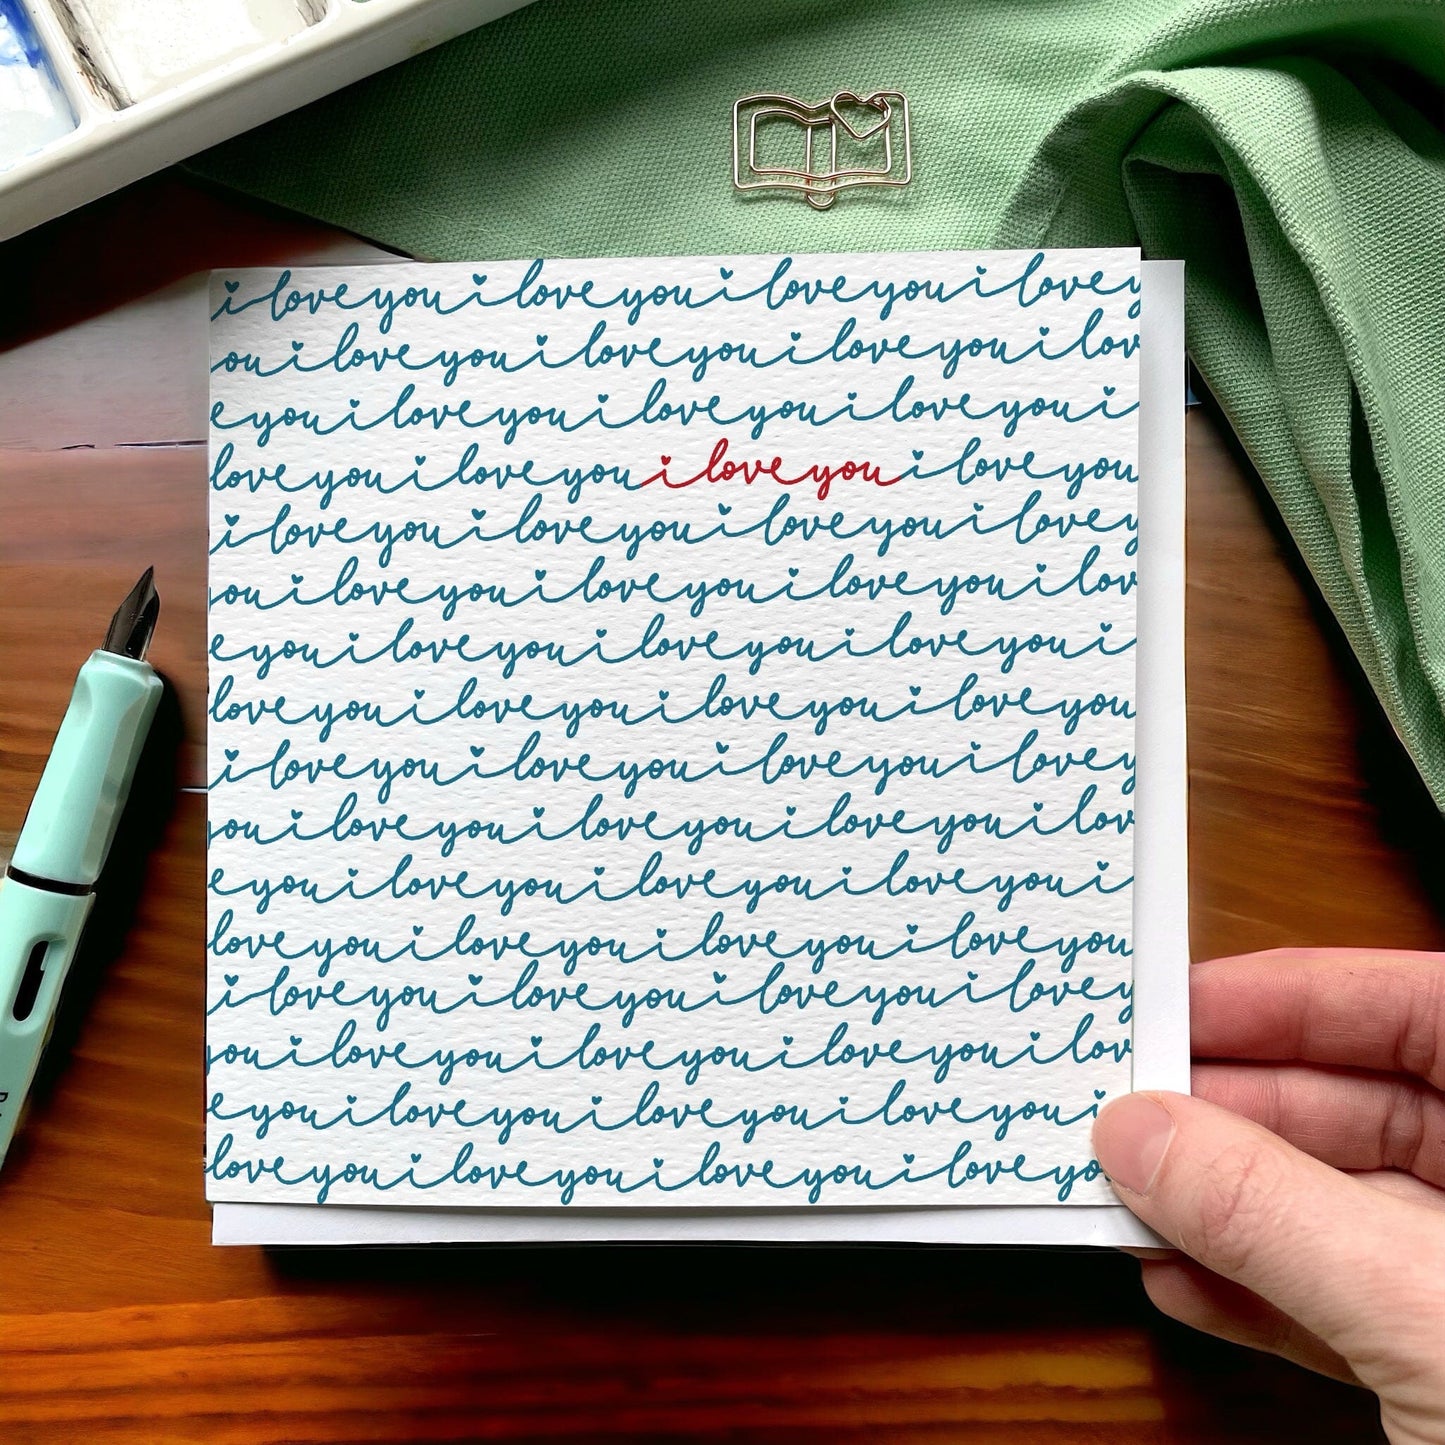 i love you i love you i love you i love y
ou i love you i love you i love you i lov
e you i love you i love you i love you i
love you i love you i love you i love you
i love you i love you i love you i love y
ou i love you i love you i love you i lov
e you i love you i love you i love you i
love you i love you i love you i love you
i love you i love you i love you i love y
ou i love you i love you i love you i lov
e you i love you i love you i love you i
love you i love you i love you i love you
i love you i love you i love you i love y
ou i love you i love you i love you i lov
e you i love you i love you i love you i
love you i love you i love you i love yo